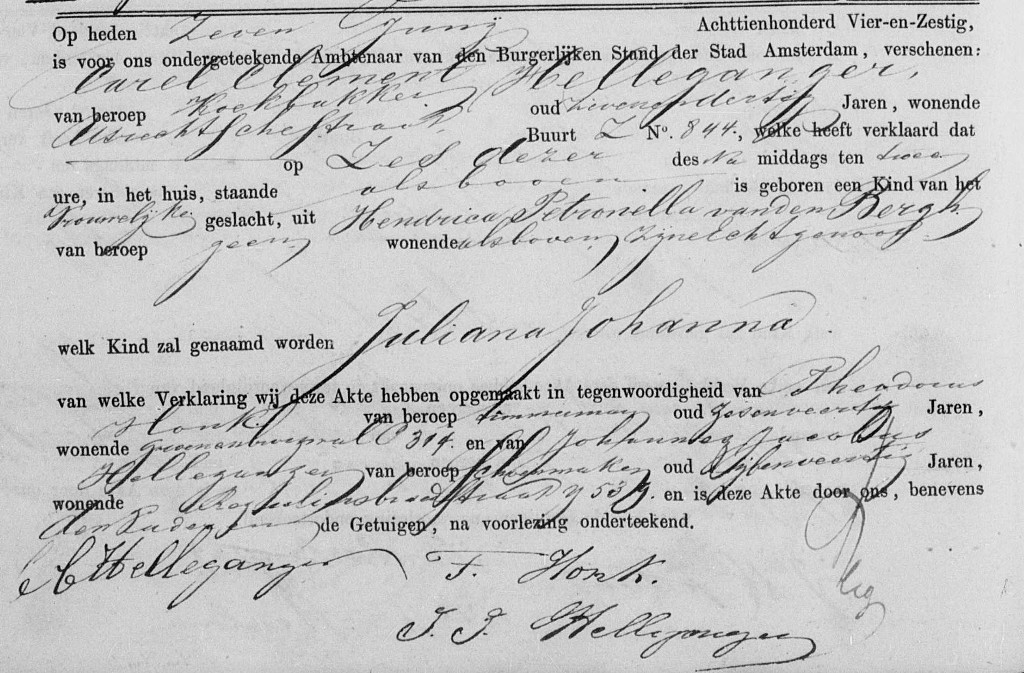 Op heden Zeven Junij Achttienhonderd Vier-en-Zestig,
is voor ons ondergeteekende Ambtenaar van den Burgerlijken Stand der Stad Amsterdam, verschenen:
Carel Clement Helleganger,
van beroep Koekbakker oud zevenendertig Jaren, wonende
Utrechtschestraat Buurt Z No. 844, welke heeft verklaard dat
op Zes dezer des Na middags ten twee
ure, in het huis, staande alsboven is geboren een Kind van het
Vrouwelijke geslacht, uit Hendrica Petronella van den Bergh
van beroep geen wonende alsboven, zijne echtgenoot
welk Kind zal genaamd worden Juliana Johanna.
van welke Verklaring wij deze Akte hebben opgemaakt in tegenwoordigheid van Theodorus
Honk van beroep timmerman oud zesenveertig Jaren,
wonende 314. en van Johannes Jacobus
Helleganger van beroep schoenmaker oud vijfenveertig Jaren,
wonende en is deze Akte door ons, benevens
den Vader en de Getuigen, na voorlezing onderteekend.
CC Helleganger F. Honk.
J. J. Helleganger